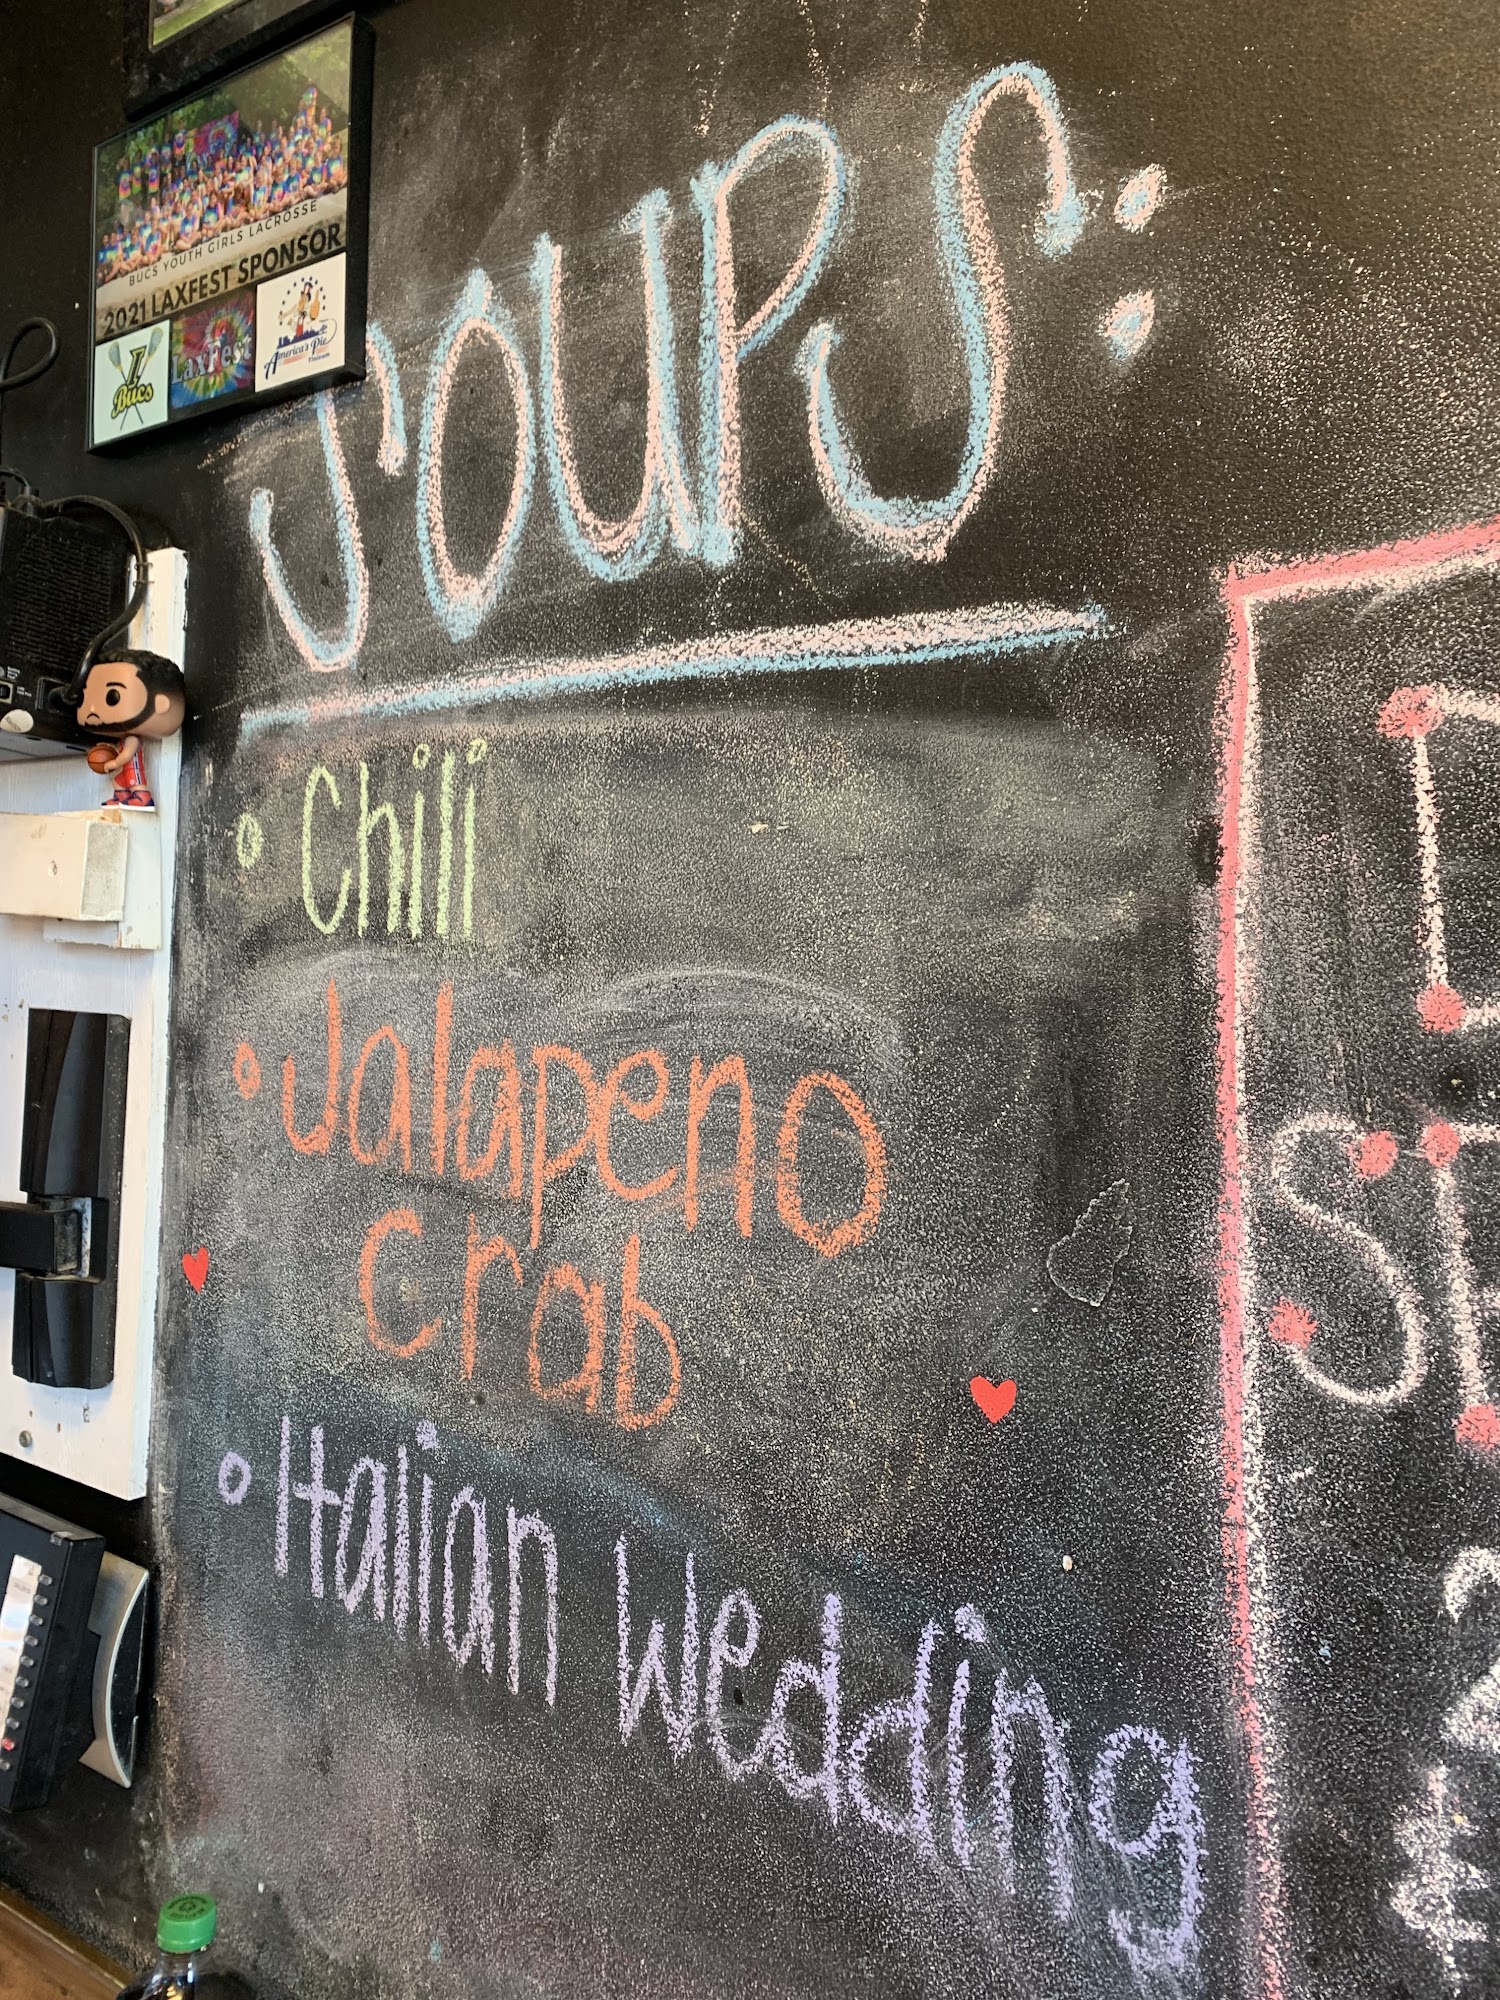 BUCS YOUTH GIRLS LACROSSE
2021 LAXFEST SPONSOR
Bucs
LaxFest
America's Pie
SOUPS:
Chili
Jalapeno
Crab
Italian Wedding